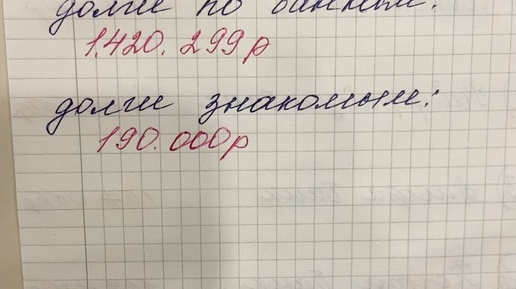 долги по банкам:
1.420.299р
долги знакомым:
190.000р